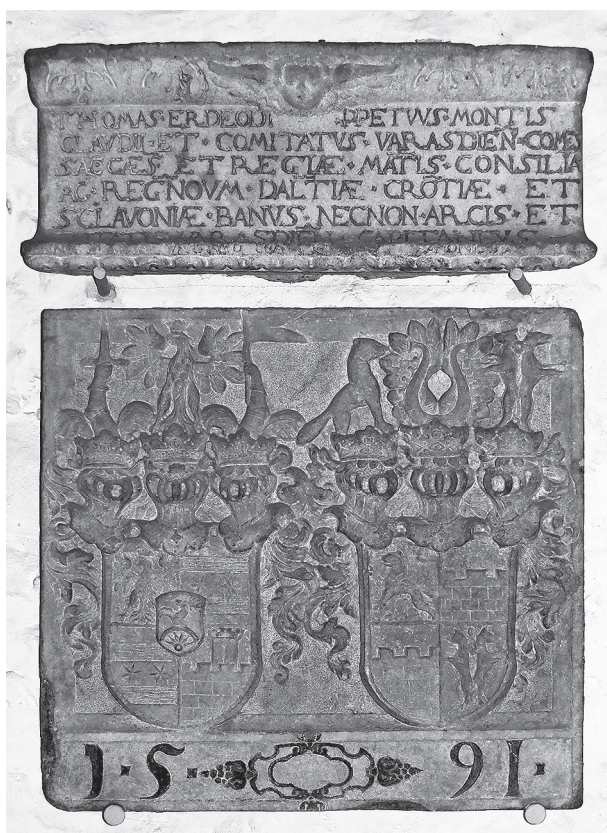 THOMAS·ERDEODI PPETVVS·MONTIS
CLAVDII·ET·COMITATVS·VARASDIEN·COMES
SACCES·ET REGIÆ·MATIS·CONSILIA
AC·REGNOVM·DALTIÆ·CROTIÆ·ET
SCLAVONIÆ·BANVS·NECNON·ARCIS·ET
VARASDIEN·CAPITANEVS
1·5·91·